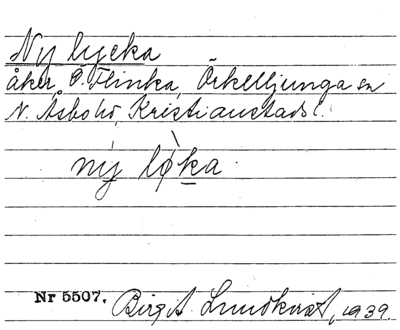 Ny lycka
åker, Ö. Flinka, Örkelljunga sn
N. Åsbo hd, Kristianstads l.
ny løka.
Nr 5507. Birgit Lundkvist, 1939.